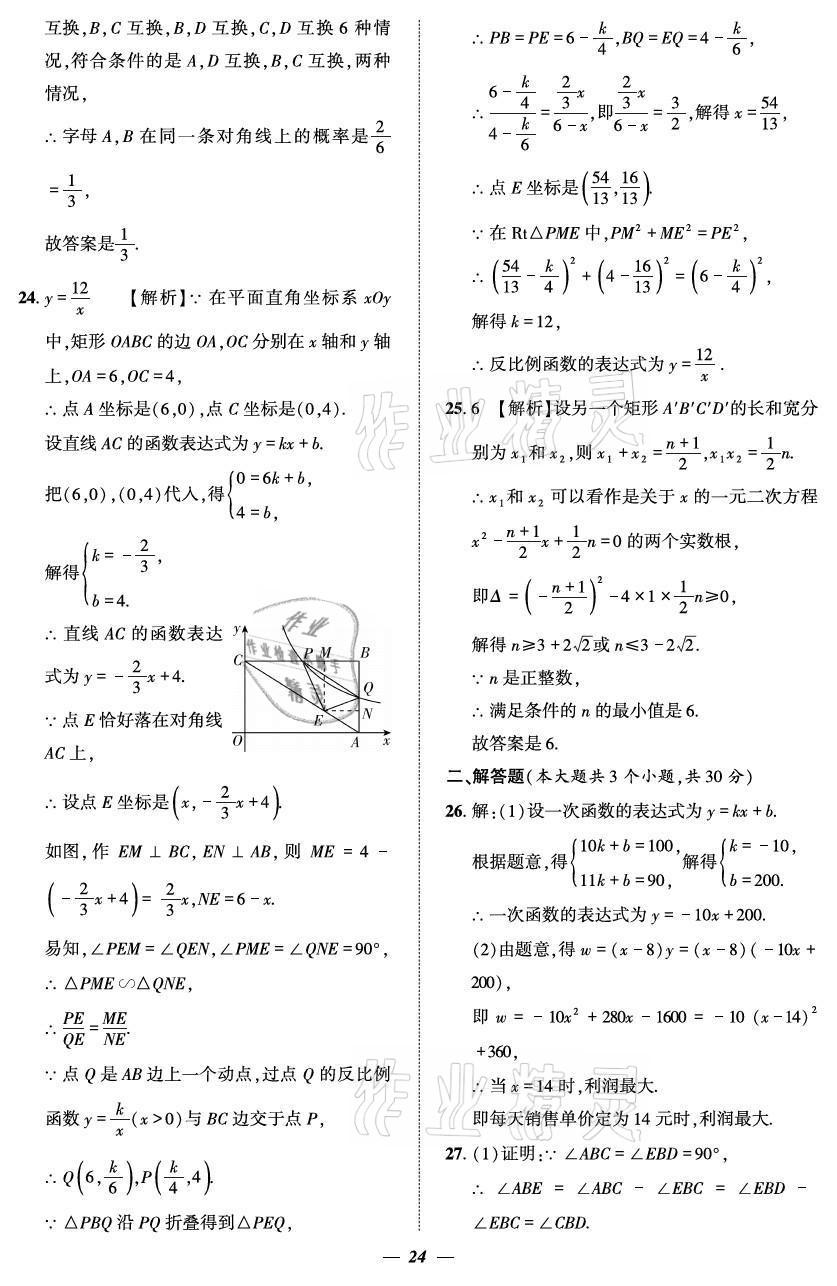 互换,B,C 互换,B,D 互换,C,D 互换 6 种情
况,符合条件的是 A,D 互换,B,C 互换,两种
情况,
∴字母 A,B 在同一条对角线上的概率是2/6
=1/3,
故答案是1/3.
24. y=12/x 【解析】∵在平面直角坐标系 xOy
中,矩形 OABC 的边 OA,OC 分别在 x 轴和 y 轴
上,OA=6,OC=4,
∴点 A 坐标是(6,0),点 C 坐标是(0,4).
设直线 AC 的函数表达式为 y=kx+b.
把(6,0),(0,4)代人,得{0=6k+b,
4=b,
解得{k=-2/3,
b=4.
∴直线 AC 的函数表达
式为 y=-2/3x+4.
∵点 E 恰好落在对角线
AC 上,
y
C P M B
Q
E N
O A x
∴设点 E 坐标是(x,-2/3x+4).
如图,作 EM⊥BC,EN⊥AB,则 ME=4-
(-2/3x+4)=2/3x,NE=6-x.
易知,∠PEM=∠QEN,∠PME=∠QNE=90°,
∴△PME∽△QNE,
∴PE/QE=ME/NE.
∵点 Q 是 AB 边上一个动点,过点 Q 的反比例
函数 y=k/x(x>0)与 BC 边交于点 P,
∴Q(6,k/6),P(k/4,4).
∵△PBQ 沿 PQ 折叠得到△PEQ,
∴PB=PE=6-k/4,BQ=EQ=4-k/6,
∴(6-k/4)/(4-k/6)=(2/3x)/(6-x),即(2/3x)/(6-x)=3/2,解得 x=54/13,
∴点 E 坐标是(54/13,16/13).
∵在 Rt△PME 中,PM²+ME²=PE²,
∴(54/13-k/4)²+(4-16/13)²=(6-k/4)²,
解得 k=12,
∴反比例函数的表达式为 y=12/x.
25. 6 【解析】设另一个矩形 A'B'C'D'的长和宽分
别为 x₁和 x₂,则 x₁+x₂=(n+1)/2,x₁x₂=1/2n.
∴x₁和 x₂ 可以看作是关于 x 的一元二次方程
x²-(n+1)/2x+1/2n=0 的两个实数根,
即Δ=(-(n+1)/2)²-4×1×1/2n≥0,
解得 n≥3+2√2或 n≤3-2√2.
∵n 是正整数,
∴满足条件的 n 的最小值是 6.
故答案是 6.
二、解答题(本大题共 3 个小题,共 30 分)
26. 解:(1)设一次函数的表达式为 y=kx+b.
根据题意,得{10k+b=100, 解得{k=-10,
11k+b=90, b=200.
∴一次函数的表达式为 y=-10x+200.
(2)由题意,得 w=(x-8)y=(x-8)(-10x+
200),
即 w=-10x²+280x-1600=-10(x-14)²
+360,
∴当 x=14 时,利润最大.
即每天销售单价定为 14 元时,利润最大.
27. (1)证明:∵∠ABC=∠EBD=90°,
∴∠ABE=∠ABC-∠EBC=∠EBD-
∠EBC=∠CBD.
— 24 —
作业精灵
作业精灵